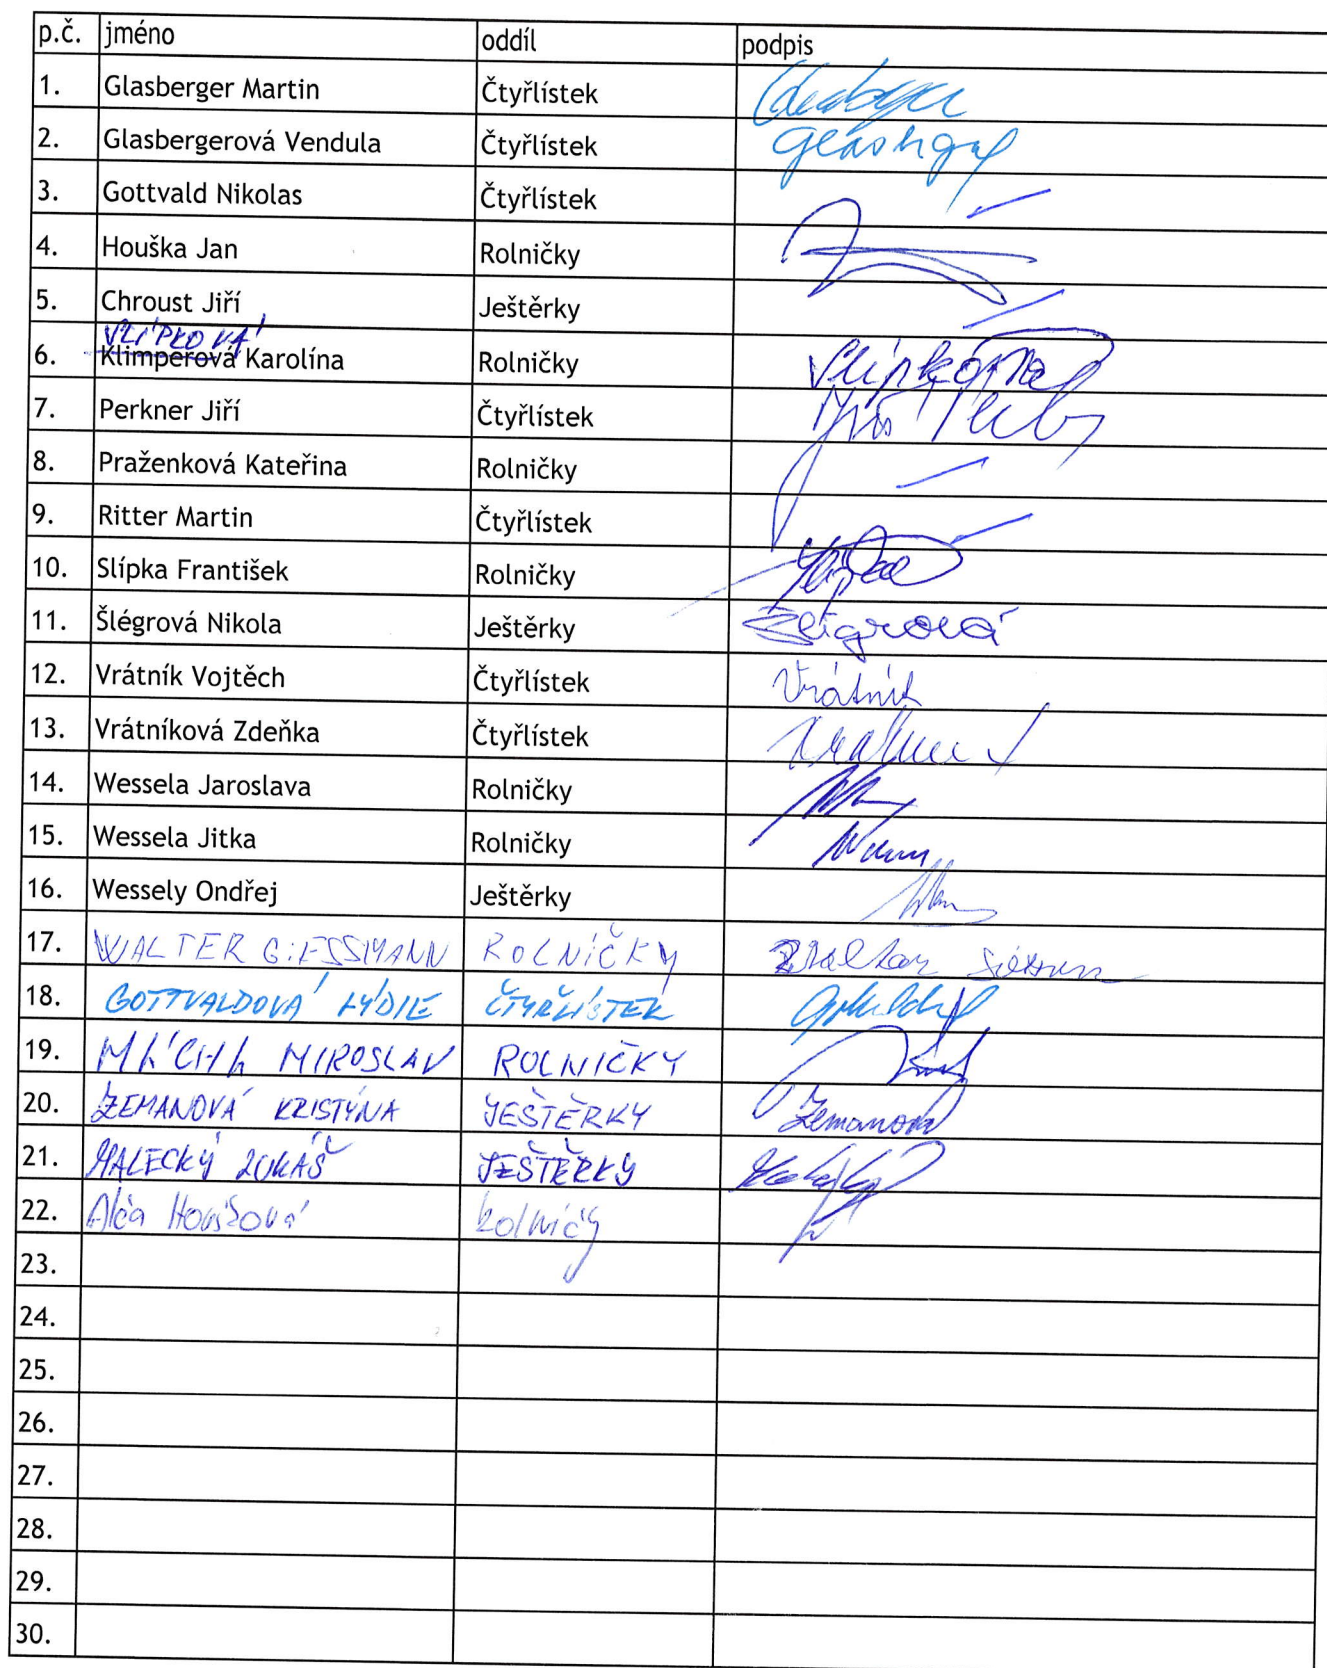 p.č. jméno oddíl podpis
1. Glasberger Martin Čtyřlístek
2. Glasbergerová Vendula Čtyřlístek
3. Gottvald Nikolas Čtyřlístek
4. Houška Jan Rolničky
5. Chroust Jiří Ještěrky
SLÍPKOVÁ
6. Klimperová Karolína Rolničky Slípková
7. Perkner Jiří Čtyřlístek
8. Praženková Kateřina Rolničky
9. Ritter Martin Čtyřlístek
10. Slípka František Rolničky
11. Šlégrová Nikola Ještěrky Šlégrová
12. Vrátník Vojtěch Čtyřlístek Vrátník
13. Vrátníková Zdeňka Čtyřlístek
14. Wessela Jaroslava Rolničky
15. Wessela Jitka Rolničky
16. Wessely Ondřej Ještěrky
17. WALTER GIESSMANN ROLNIČKY
18. GOTTVALDOVÁ LÝDIE ČTYŘLÍSTEK
19. MIROSLAV ROLNIČKY
20. ZEMANOVÁ KRISTÝNA JEŠTĚRKY Zemanová
21. MALECKÝ LUKÁŠ JEŠTĚRKY
22.
23.
24.
25.
26.
27.
28.
29.
30.